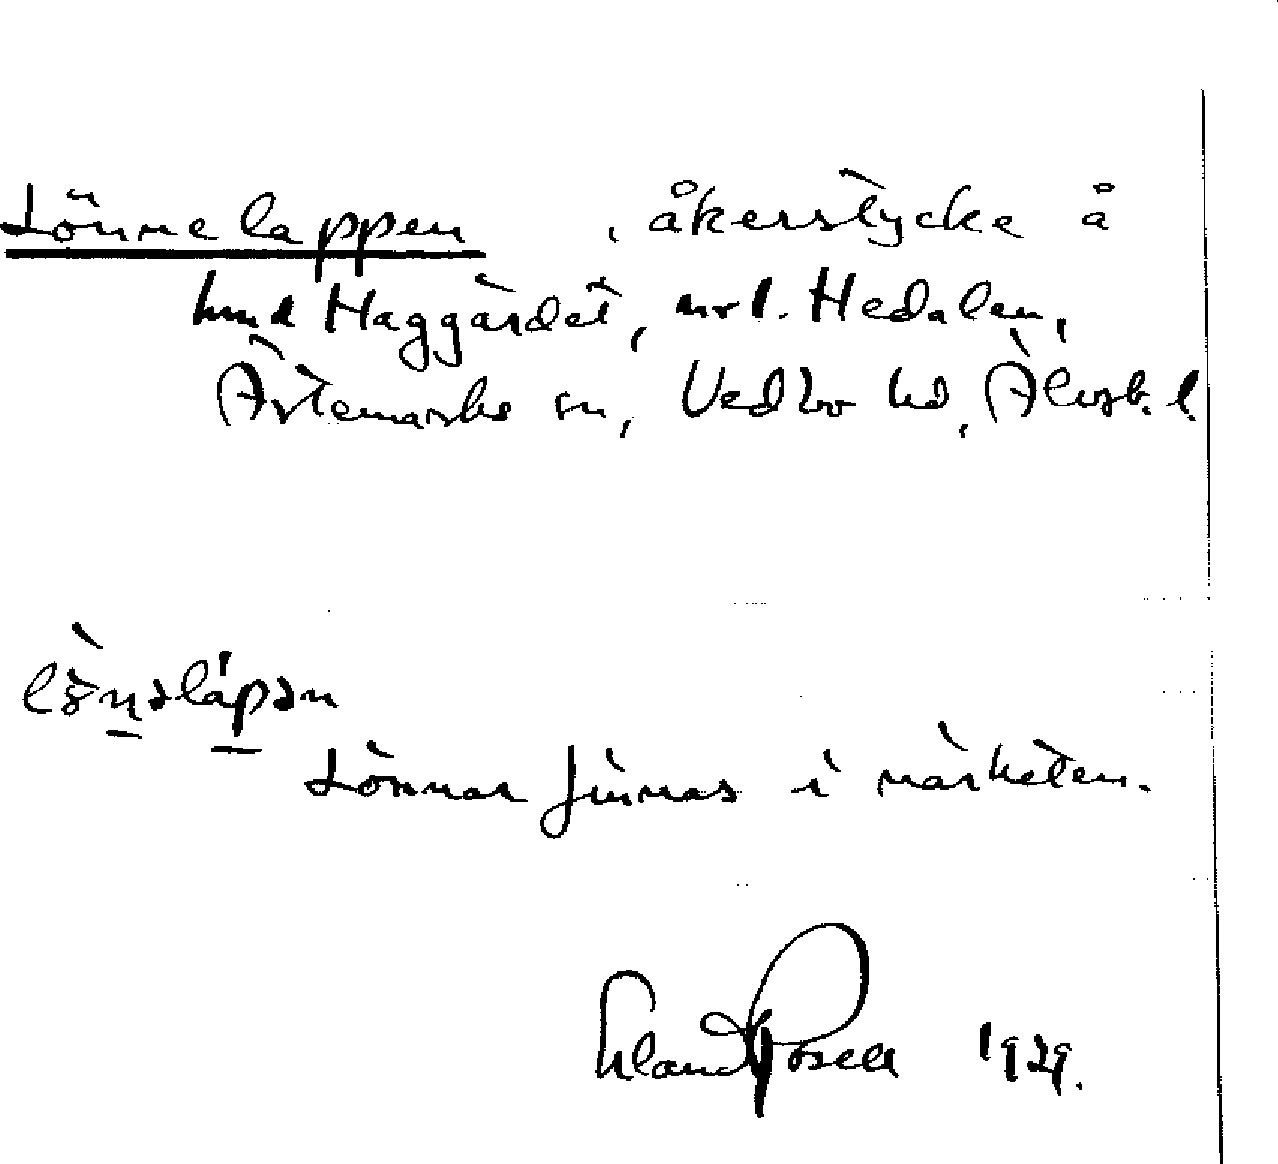 Lönnelappen , åkerstycke å
hmd Haggärdet, nrl. Hedalen,
Ärtemarks sn, Vedbo hd, Älvsb. l.
Lönnar finnas i närheten.
Erland Rosell 1929.